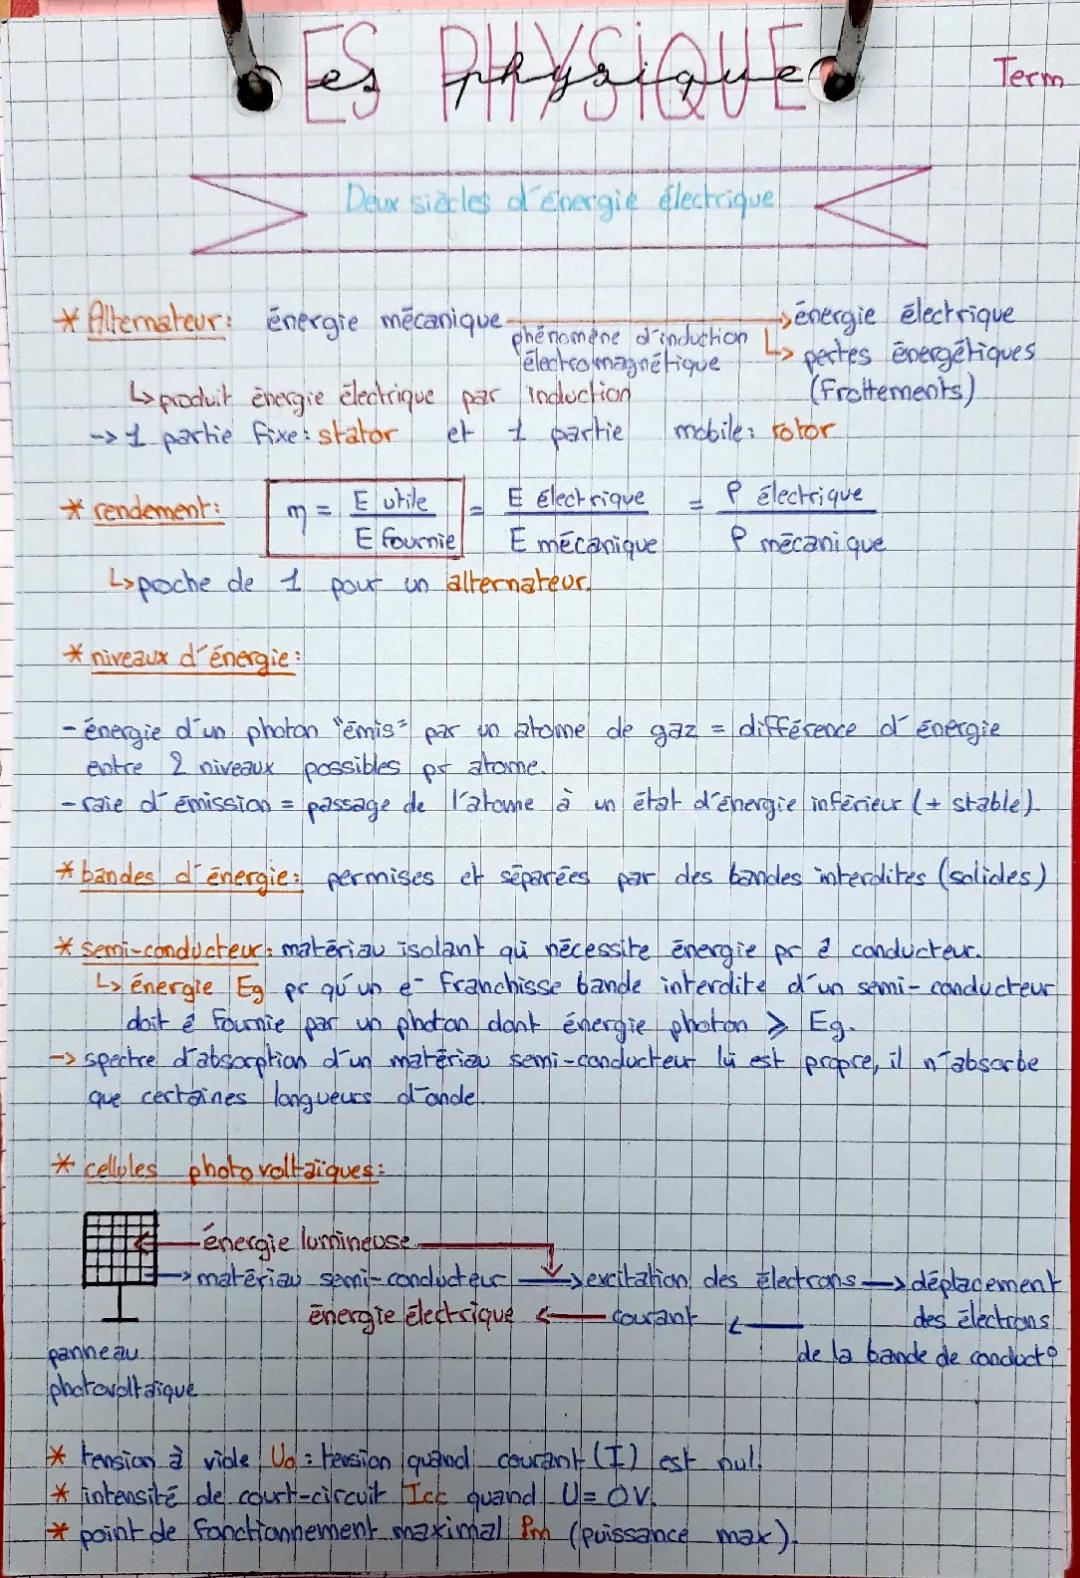 ES PHYSIQUE
es physique
Term
Deux siècles d'énergie électrique
* Alternateur: énergie mécanique → énergie électrique
phénomène d'induction ↳ pertes énergétiques
électromagnétique (frottements)
↳ produit énergie électrique par induction
-> 1 partie fixe: stator et 1 partie mobile: rotor
* rendement: η = E utile / E fournie = E électrique / E mécanique = P électrique / P mécanique
↳ proche de 1 pour un alternateur.
* niveaux d'énergie:
- énergie d'un photon "émis" par un atome de gaz = différence d'énergie
entre 2 niveaux possibles pr atome.
- raie d'émission = passage de l'atome à un état d'énergie inférieur (+ stable).
* bandes d'énergie: permises et séparées par des bandes interdites (solides)
* semi-conducteur: matériau isolant qui nécessite énergie pr ê conducteur.
↳ énergie Eg pr qu'un e- franchisse bande interdite d'un semi-conducteur
doit ê fournie par un photon dont énergie photon ⩾ Eg.
-> spectre d'absorption d'un matériau semi-conducteur lui est propre, il n'absorbe
que certaines longueurs d'onde.
* cellules photovoltaïques:
énergie lumineuse
→ matériau semi-conducteur → excitation des électrons → déplacement
énergie électrique ← courant ← des électrons
de la bande de conduct°
panneau
photovoltaïque
* tension à vide U0 : tension quand courant (I) est nul.
* intensité de court-circuit Icc quand U = 0V.
* point de fonctionnement maximal Pm (puissance max).